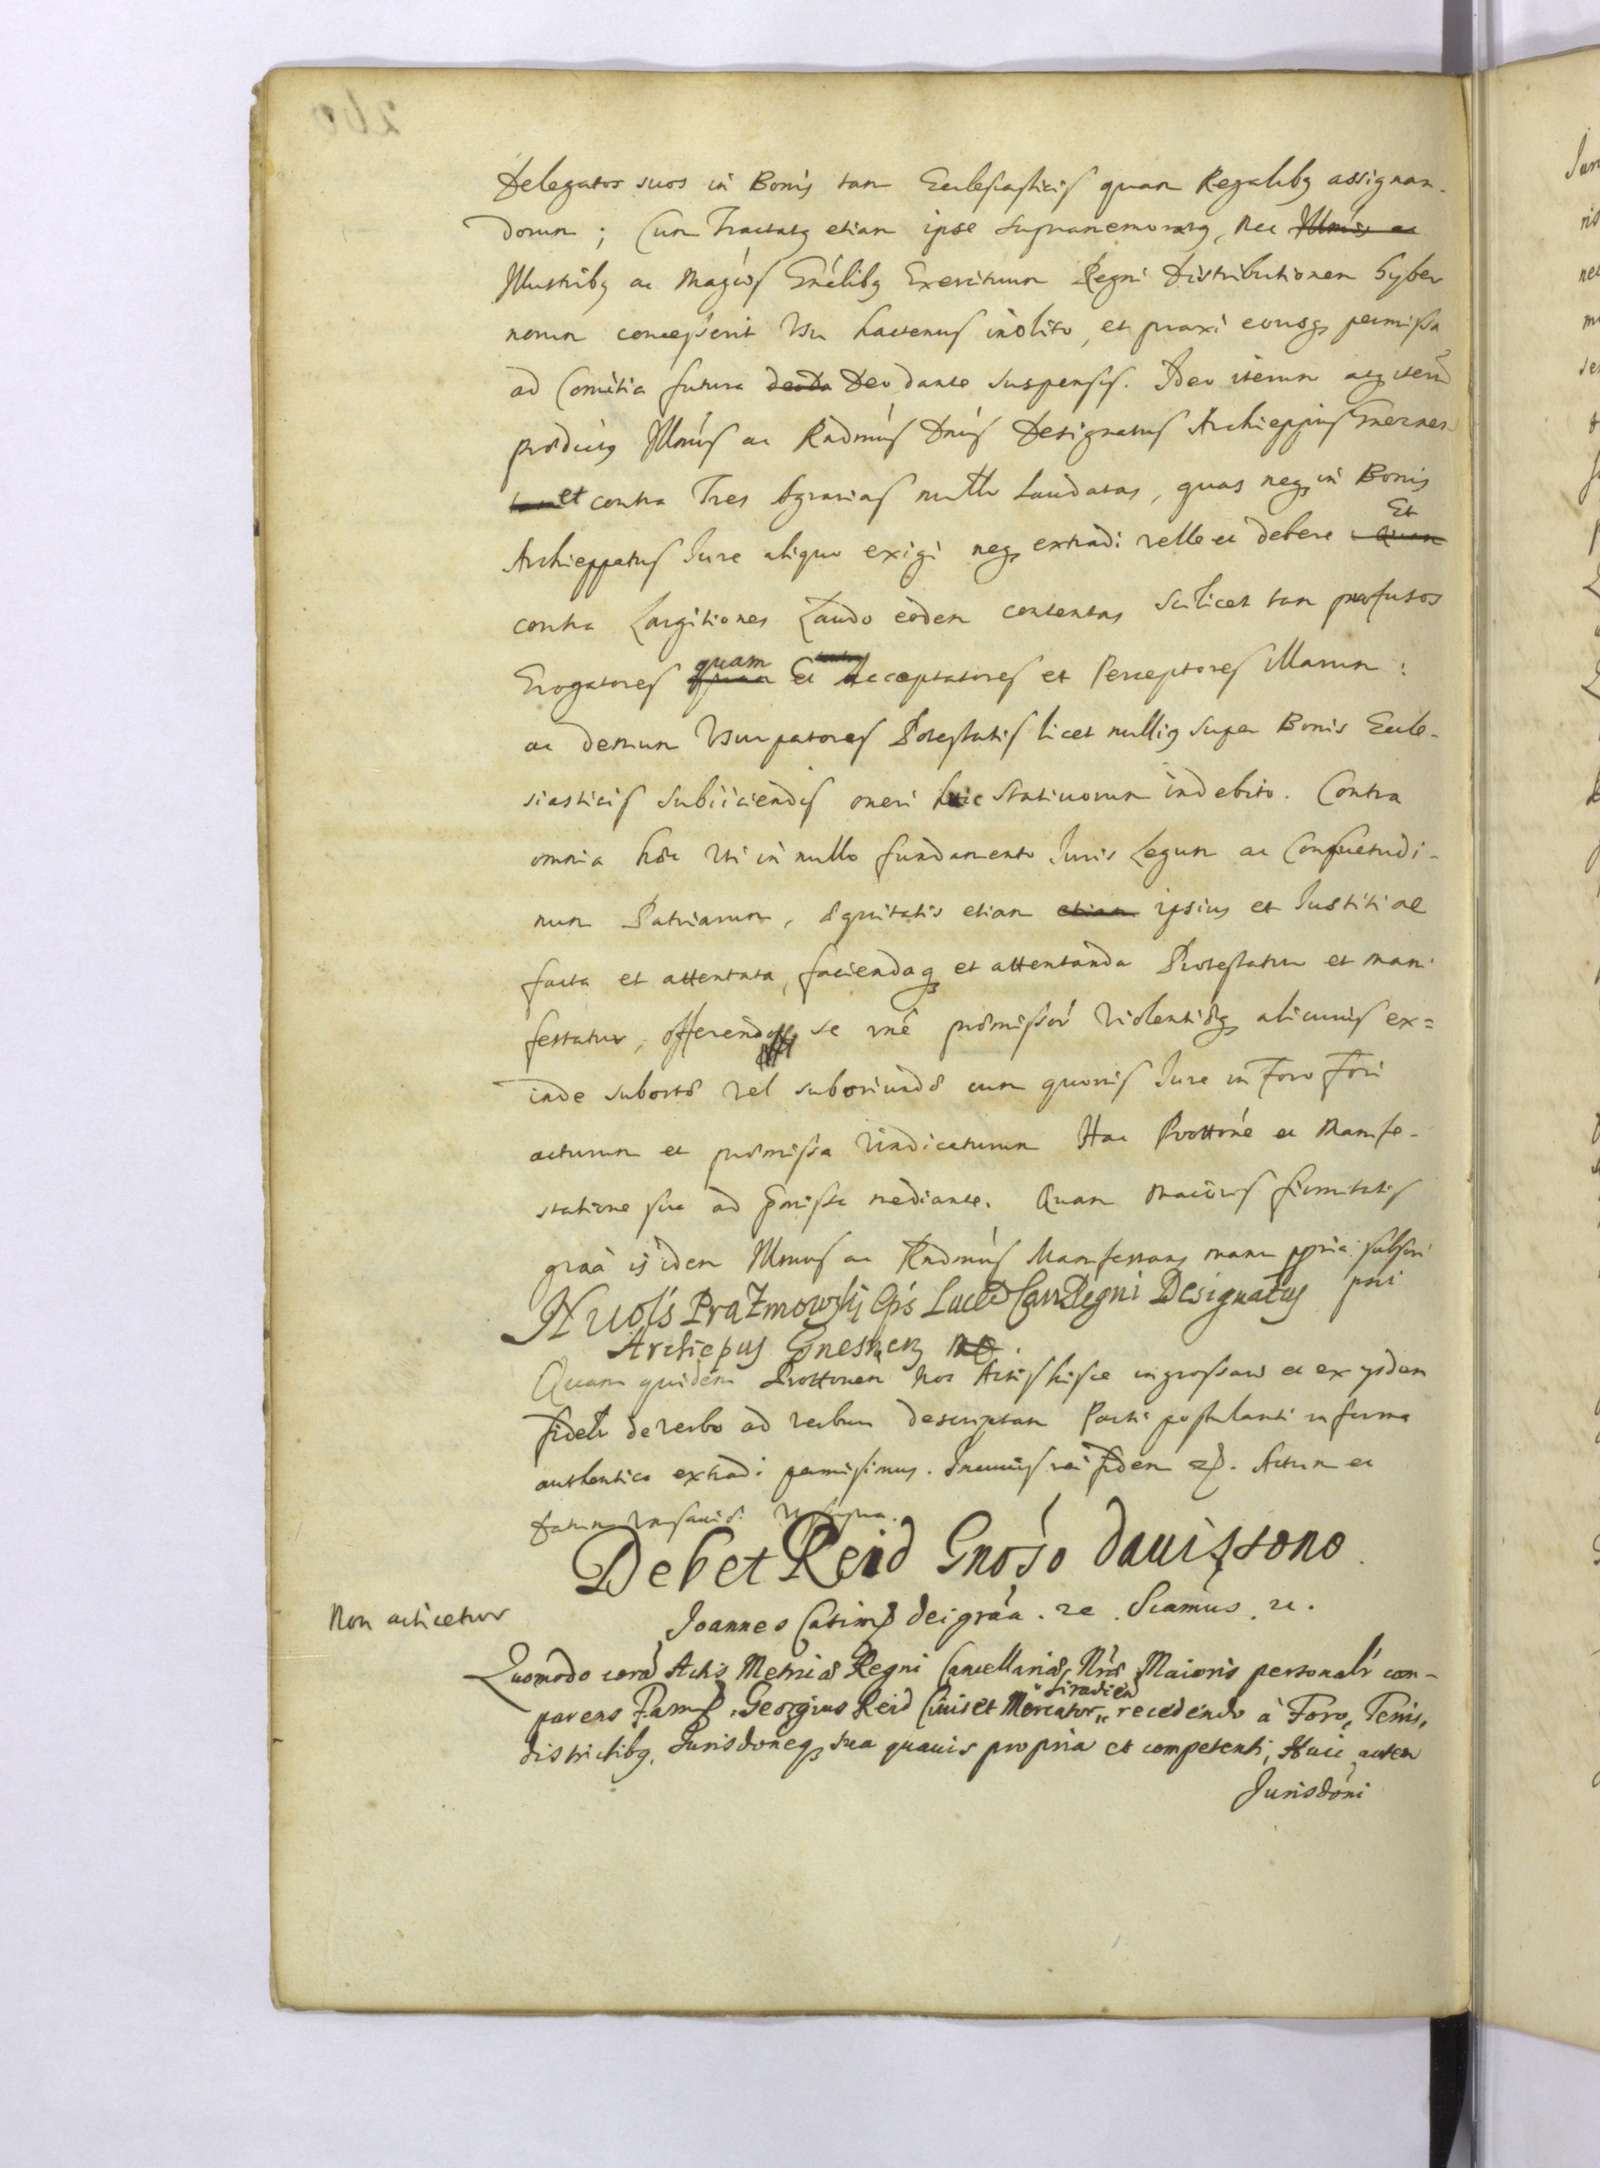 Delegatos suos in Bonis tam Ecclesiasticis quam Regalibq assignan-
dorum; Cum Tractatq etiam ipse supramemoratq, nec Illmis ac
Illustribq ac Magcis Gnélibq Exercituum Regni Distributionem hyber
norum concesserit Usu hactenus inolito, et praxi eousq permissa
ad Comitia futura Deo dante suspensis. Ideo iterum atq iterū
prædictq Illmus ac Rndmus Dnus Designatus Archieppus Gnesnen
et contra Tres Agrarias nullr Laudatas, quas neq in Bonis
Archieppatus Jure aliquo exigi neq extradi velle et debere Et
contra Largitiones Laudo eodem contentas scilicet tam profusos
Erogatores quam et Acceptatores et Perceptores illarum:
ac demum Usurpatores Potestatis licet nulliq super Bonis Eccle-
siasticis subiiciendis oneri huic stativorum indebito. Contra
omnia hæc uti in nullo fundamento Juris Legum ac Consuetudi-
num Patriarum, æquitatis etiam etiam ipsius et Justitiae
facta et attentata, faciendaq et attentanda Protestatur et mani
festatur, offerendo se rné præmissorú violentiæq alicuius ex=
inde subortæ vel suboriundæ cum quovis Jure in Foro Fori
acturum et præmissa vindicaturum Hac Prottoné et Manife-
statione sua ad præmissa mediante. Quam maioris firmitatis
graã isidem Illmus ac Rndmus Manifestans manu ppria subscri
psit
N uols Prazmowskj Eps Luceo Can Regni Designatus
Archiepus Gnesnen
Quam quidem Prottonem nos Actis hisce ingrossari et ex ysdem
fidelr de verbo ad verbum descriptam Parti postulanti in forma
authentica extradi permisimus. In cuius rei fidem etc. Actum et
Datum Varsaviæ Ut supra.
Debet Reid Gnóso Davissono
Non acticetur
Joannes Casimq dei graá. rc. Sçamus. rc.
Quomodo corā Actis Metricæ Regni Cancellariæ Nrǽ Maioris personalr com-
parens Famq. Georgius Reid Civis et Mercator Siradien recedendo à Foro, Terris,
districtibq, Jurisdoneq sua quavis propria et competenti, Huic autem
Jurisdóni